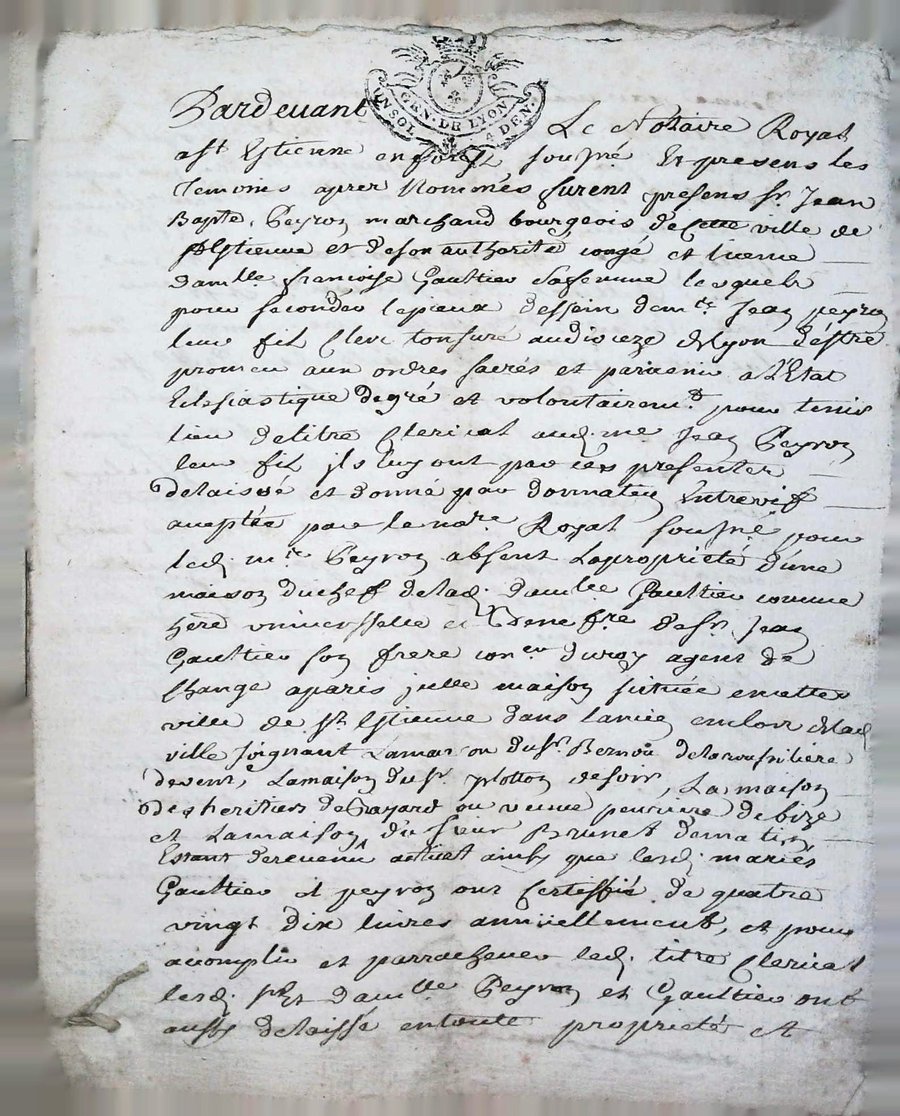 GEN. DE LYON
UN SOL 4 DEN.
Pardevant Le Notaire Royal
a St Estienne en forest soussné Et presens les
Temoins apres Nommés furent presens Sr. Jean
Bapte. Peyron marchand bourgeois de cette ville de
St Estienne et de son authorité congé et licence
damlle. francoise Gaultier sa femme lesquels
pour seconder le pieux dessain de me. Jean peyron
leur fil Clerc tonsuré au dioceze de Lyon d'estre
promeu aux ordres sacrés et parvenir a l'Etat
Eclesiastique de gré et volontairemt. pour tenir
lieu de titre Clerical aud. me Jean Peyron
leur fil ils luy ont par ces presentes
delaissé et donné par donnation Entrevif
acceptée par le nore. Royal soussné pour
led. me. Peyron absent La proprieté d'une
maison du chef de lad. damlle Gaultier comme
here universelle de Sr. Jean
Gaultier son frere conser du roy agent de
Change a paris jcelle maison scituée en cette
ville de St. Estienne dans
ville Joignant La maison du Sr. Bernou de la roussiliere
de vent, La maison du Sr. plotton de soir, La maison
des heritiers de Bayard ou veuve peuriere de bize
et La maison du sieur Brunet de matin
Estant de revenu actuel ainsy que lesd. mariés
Gaultier et peyron ont Certiffié de quatre
vingt dix livres annüellement, et pour
acomplir et parrachever led. titre Clerical
lesd. Sr Et damlle Peyron et Gaultier ont
aussy delaissé en toute proprieté et